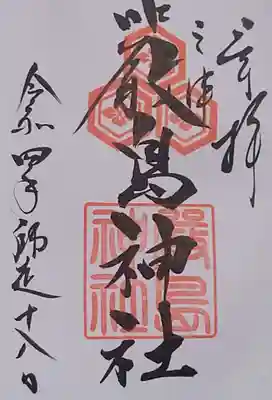 奉拝
嚴島神社
嚴島神社
令和四年師走十八日